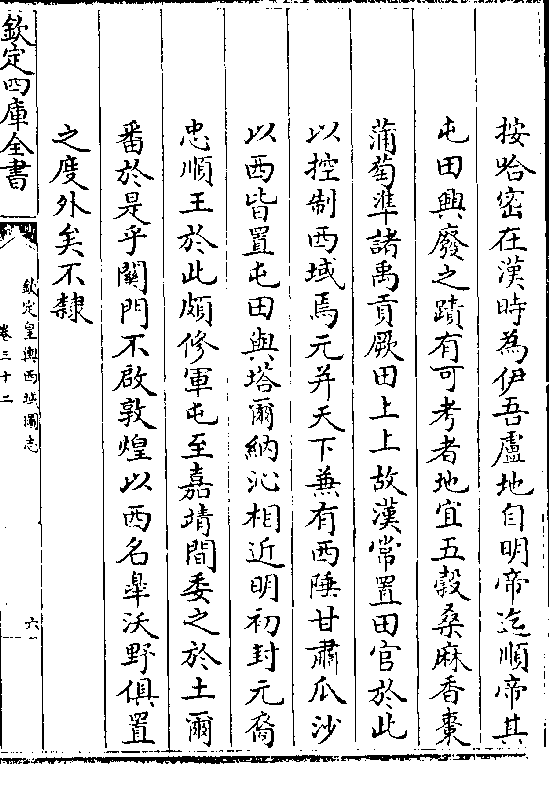 按哈密在漢時為伊吾盧地自明帝迄順帝其
屯田興廢之蹟有可考者地宜五穀桑麻香棗
蒲萄準諸禹貢厥田上上故漢常置田官於此
以控制西域焉元并天下兼有西陲甘肅瓜沙
以西皆置屯田與塔爾納沁相近明初封元裔
忠順王於此頗修軍屯至嘉靖間委之於土爾
番於是乎關門不啟敦煌以西名臯沃野俱置
之度外矣不隸
欽定四庫全書
欽定皇輿西域圖志
卷三十二
六